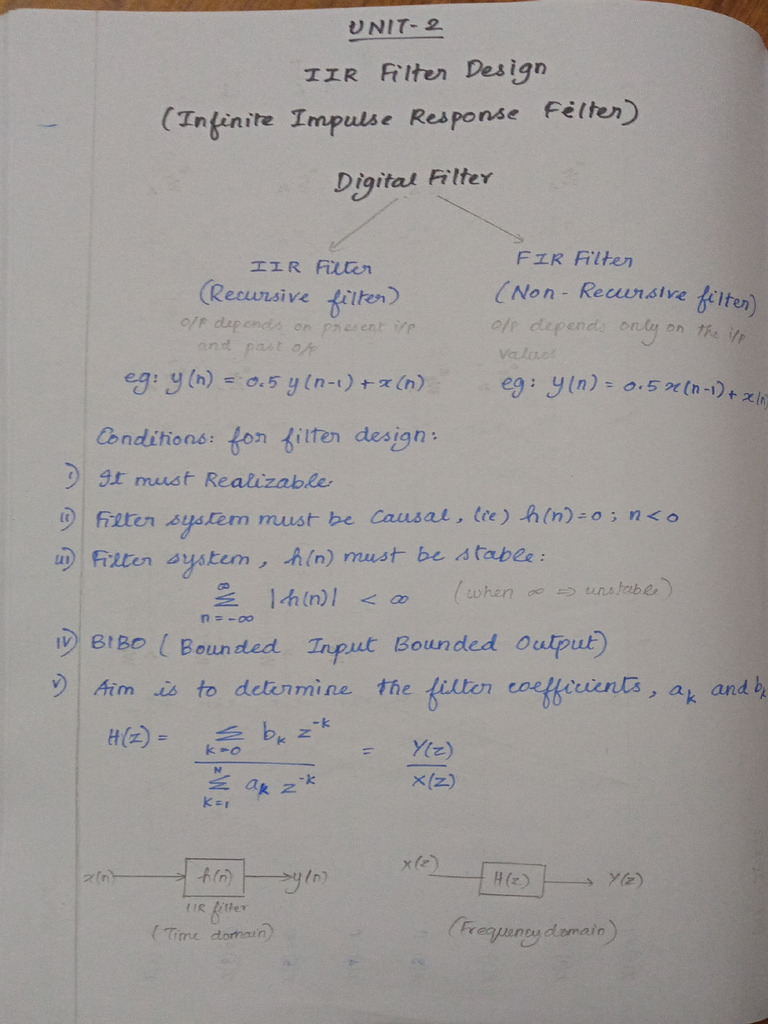 UNIT-2
IIR Filter Design
(Infinite Impulse Response Filter)
Digital Filter
IIR Filter
(Recursive filter)
O/P depends on present i/p
and past o/p
eg: y(n) = 0.5 y(n-1) + x(n)
FIR Filter
(Non-Recursive filter)
O/P depends only on the i/p
values
eg: y(n) = 0.5 x(n-1) + x(n)
Conditions: for filter design:
i) It must Realizable
ii) Filter system must be causal, (ie) h(n)=0 ; n<0
iii) Filter system, h(n) must be stable:
∞
Σ |h(n)| < ∞ (when ∞ => unstable)
n=-∞
iv) BIBO (Bounded Input Bounded Output)
v) Aim is to determine the filter coefficients, ak and bk
H(z) = Σ bk z^-k = Y(z)
k=0
N
Σ ak z^-k X(z)
k=1
x(n) h(n) y(n)
IIR filter
(Time domain)
X(z) H(z) Y(z)
(Frequency domain)